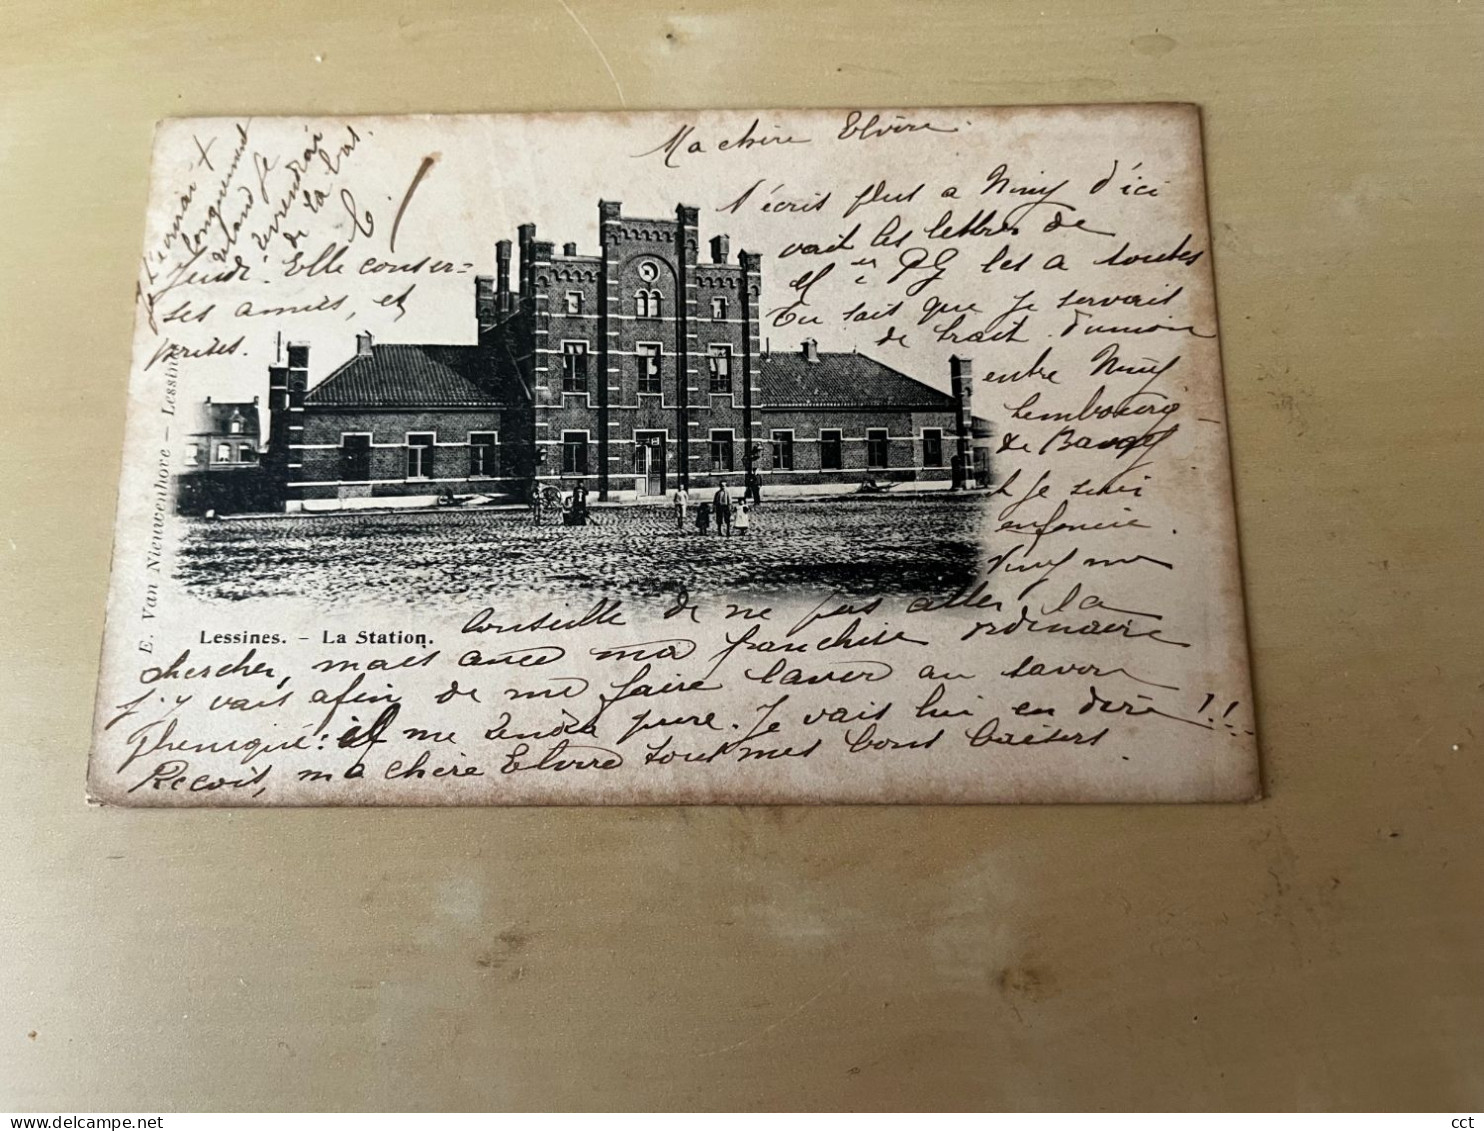 Ma chère Elvire.
N'écris plus a Niny d'ici
Jeudi. Elle conser=
vait les lettres de
ses amies, et
les a toutes
prises.
Tu sait que je servait
de trait d'union
entre Niny
Lembourg
de
je suis
enfoncée.
Niny me
conseille de ne pas aller la
chercher, mais avec ma franchise ordinaire
j'y vais afin de me faire laver au savon
Pheniqué: il me rendra pure. Je vais lui en dire!!!
Reçois, ma chère Elvire tout mes bons baisers.
X
longuement
quand je
reviendrai
de
la bas.
E.
Lessines. - La Station.
E. Van Nieuwenhove - Lessin
cct